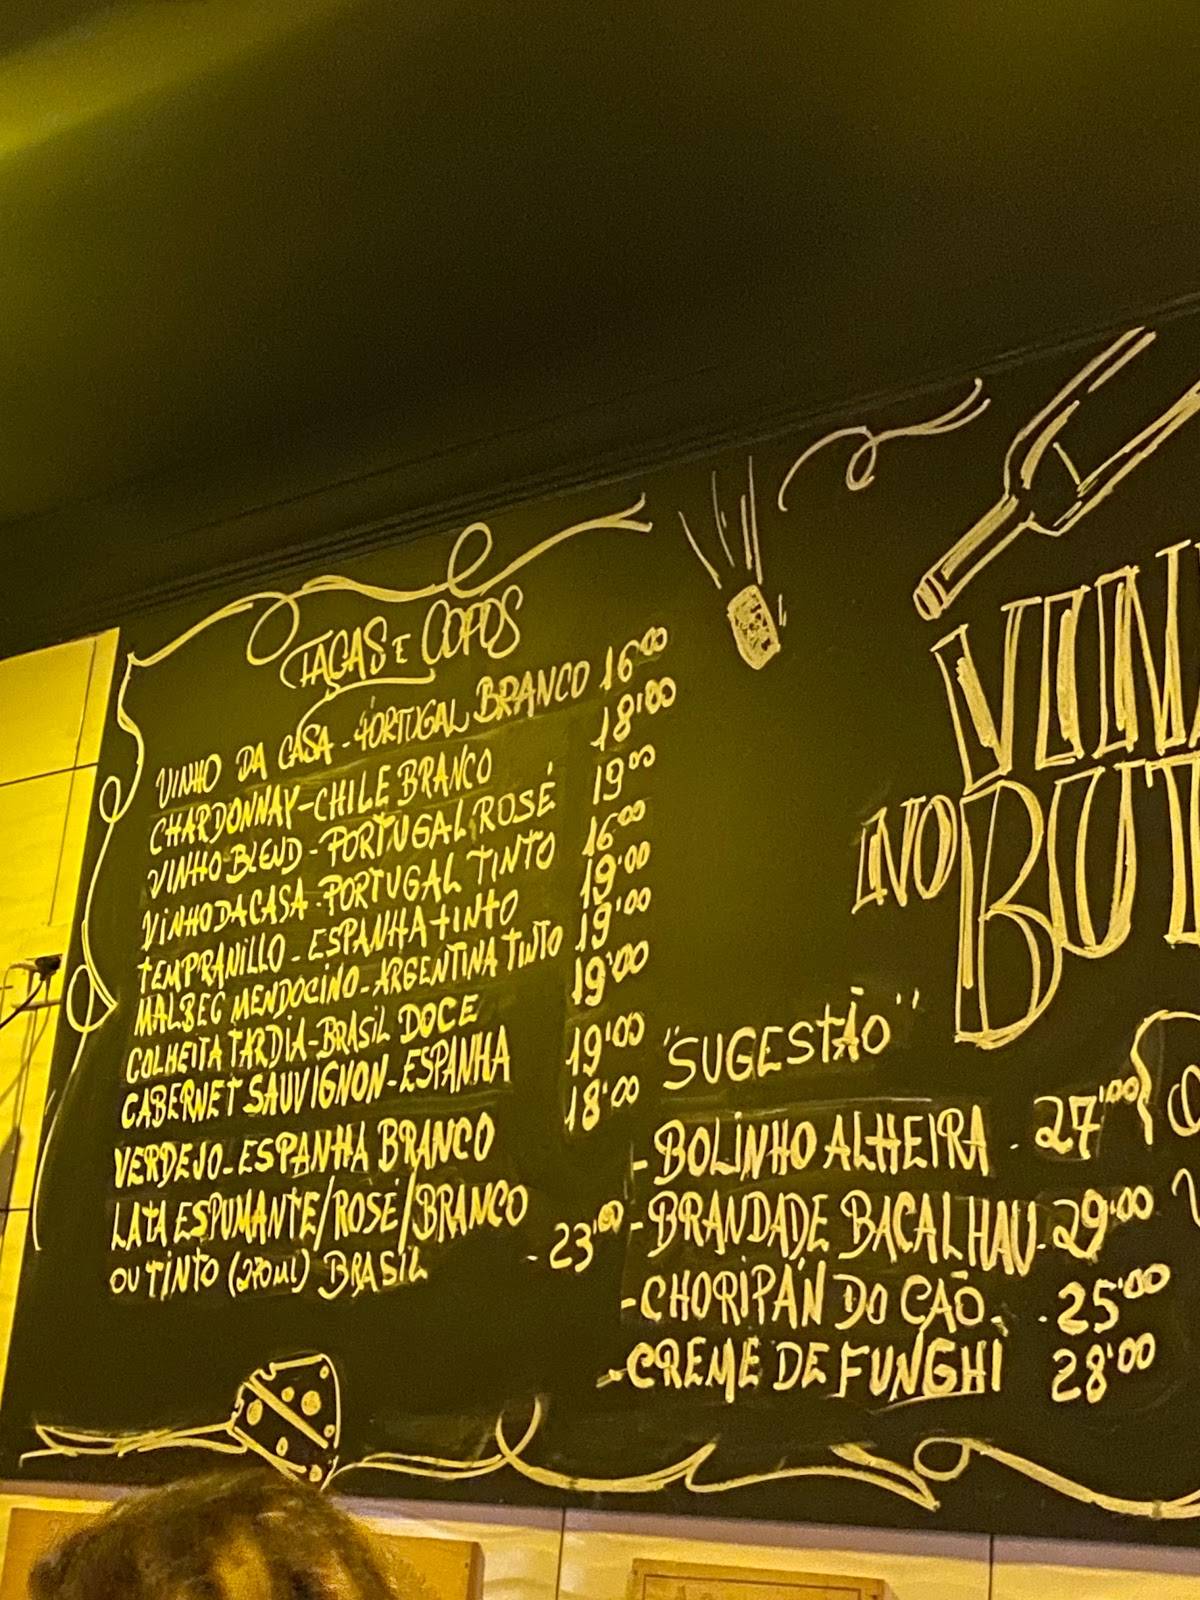 TAÇAS E COPOS
VINHO DA CASA - PORTUGAL BRANCO 16'00
CHARDONNAY - CHILE BRANCO 18'00
VINHO BLEND - PORTUGAL ROSÉ 19'00
VINHO DA CASA - PORTUGAL TINTO 16'00
TEMPRANILLO - ESPANHA TINTO 19'00
MALBEC MENDOCINO - ARGENTINA TINTO 19'00
COLHEITA TARDIA - BRASIL DOCE 19'00
CABERNET SAUVIGNON - ESPANHA 19'00
VERDEJO - ESPANHA BRANCO 18'00
LATA ESPUMANTE/ROSÉ/BRANCO
OU TINTO (270ml) BRASIL - 23'00
NO
"SUGESTÃO"
- BOLINHO ALHEIRA - 27'00
- BRANDADE BACALHAU - 29'00
- CHORIPÁN DO CÃO - 25'00
- CREME DE FUNGHI 28'00